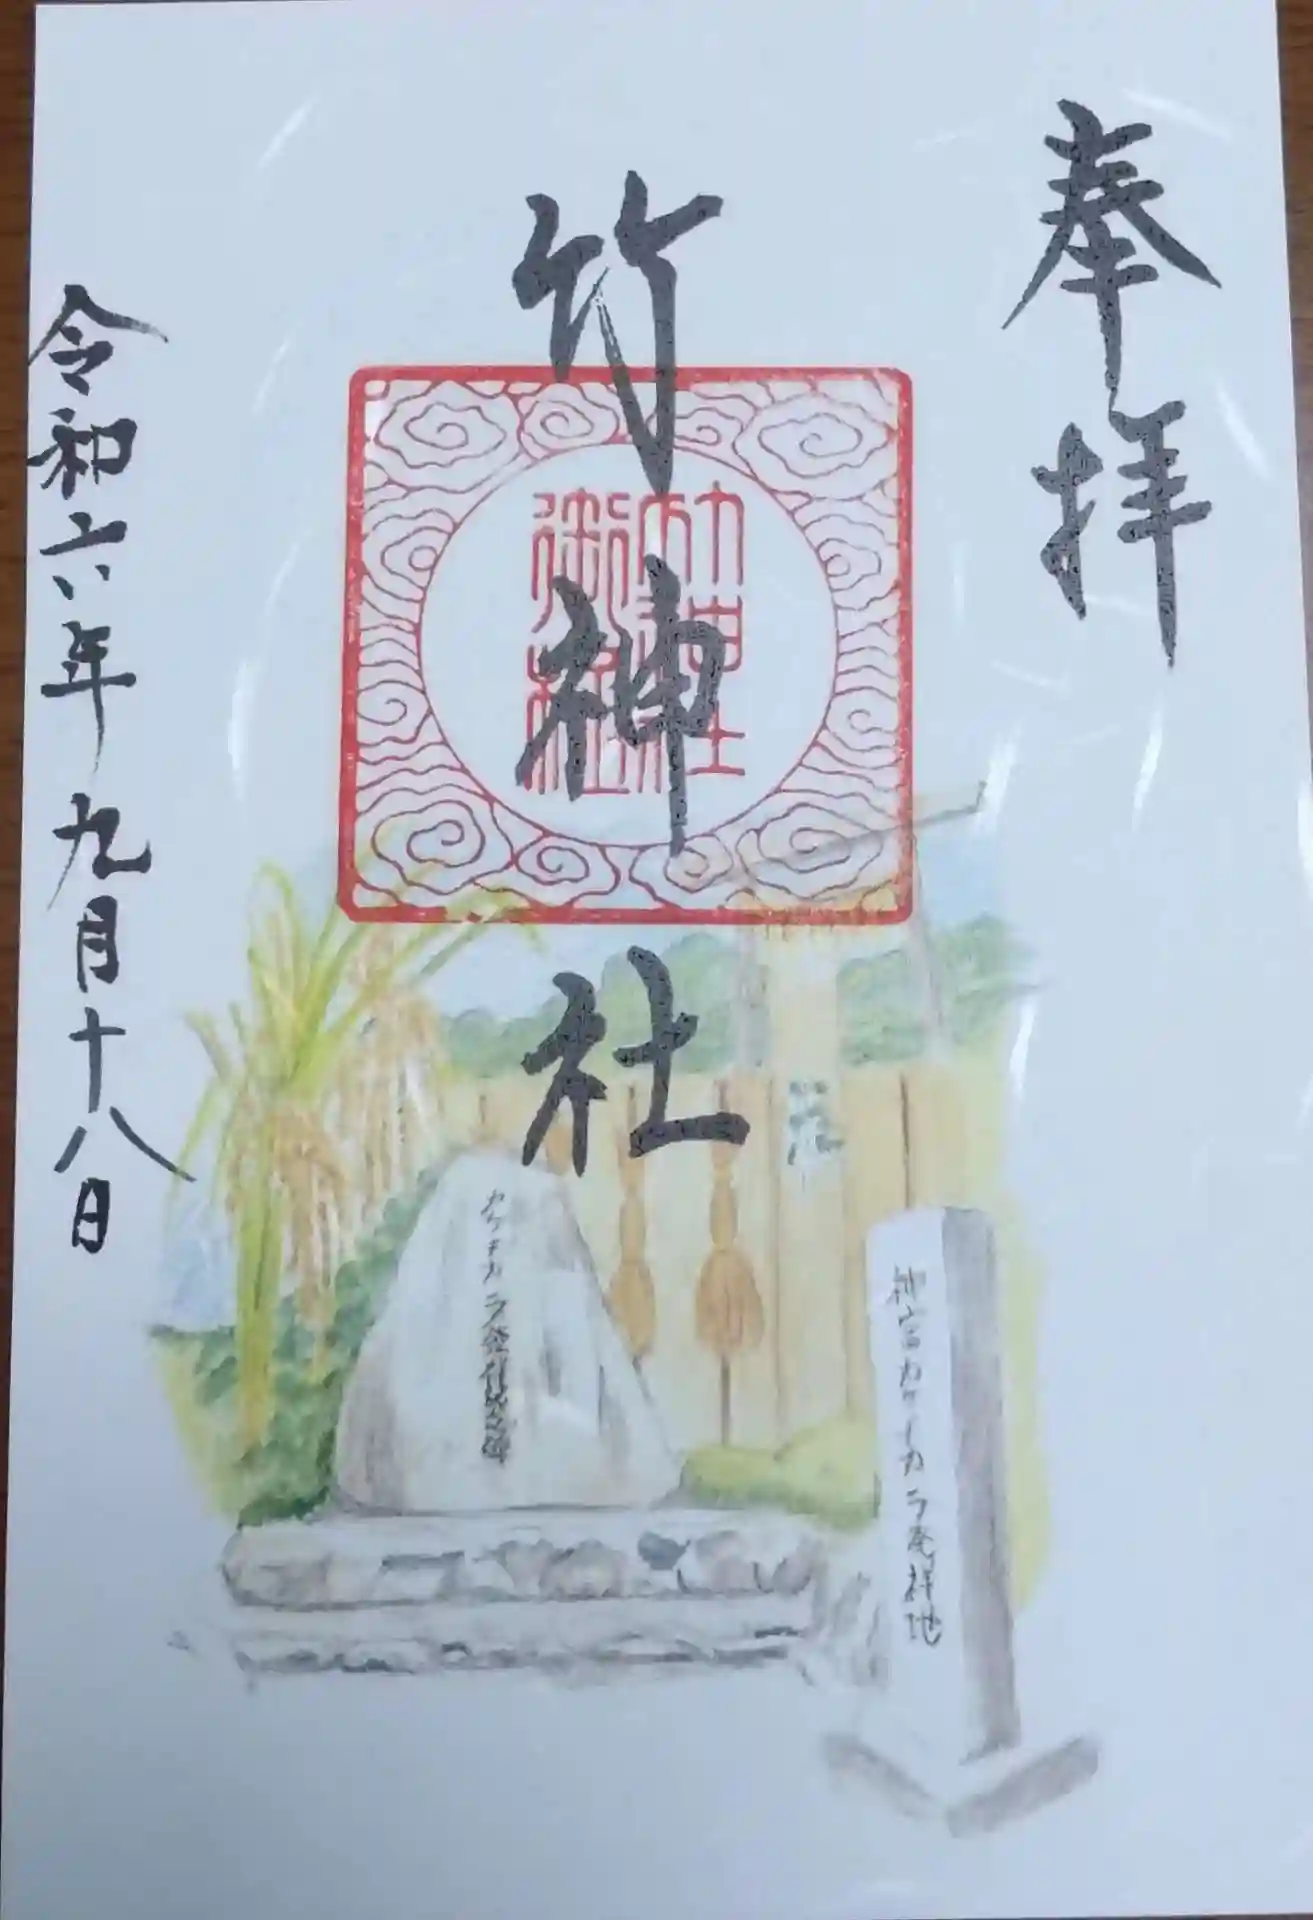 奉拝
竹神社
竹神社御社
令和六年九月十八日
カケチカラ発祥記念碑
神宮カケチカラ発祥地